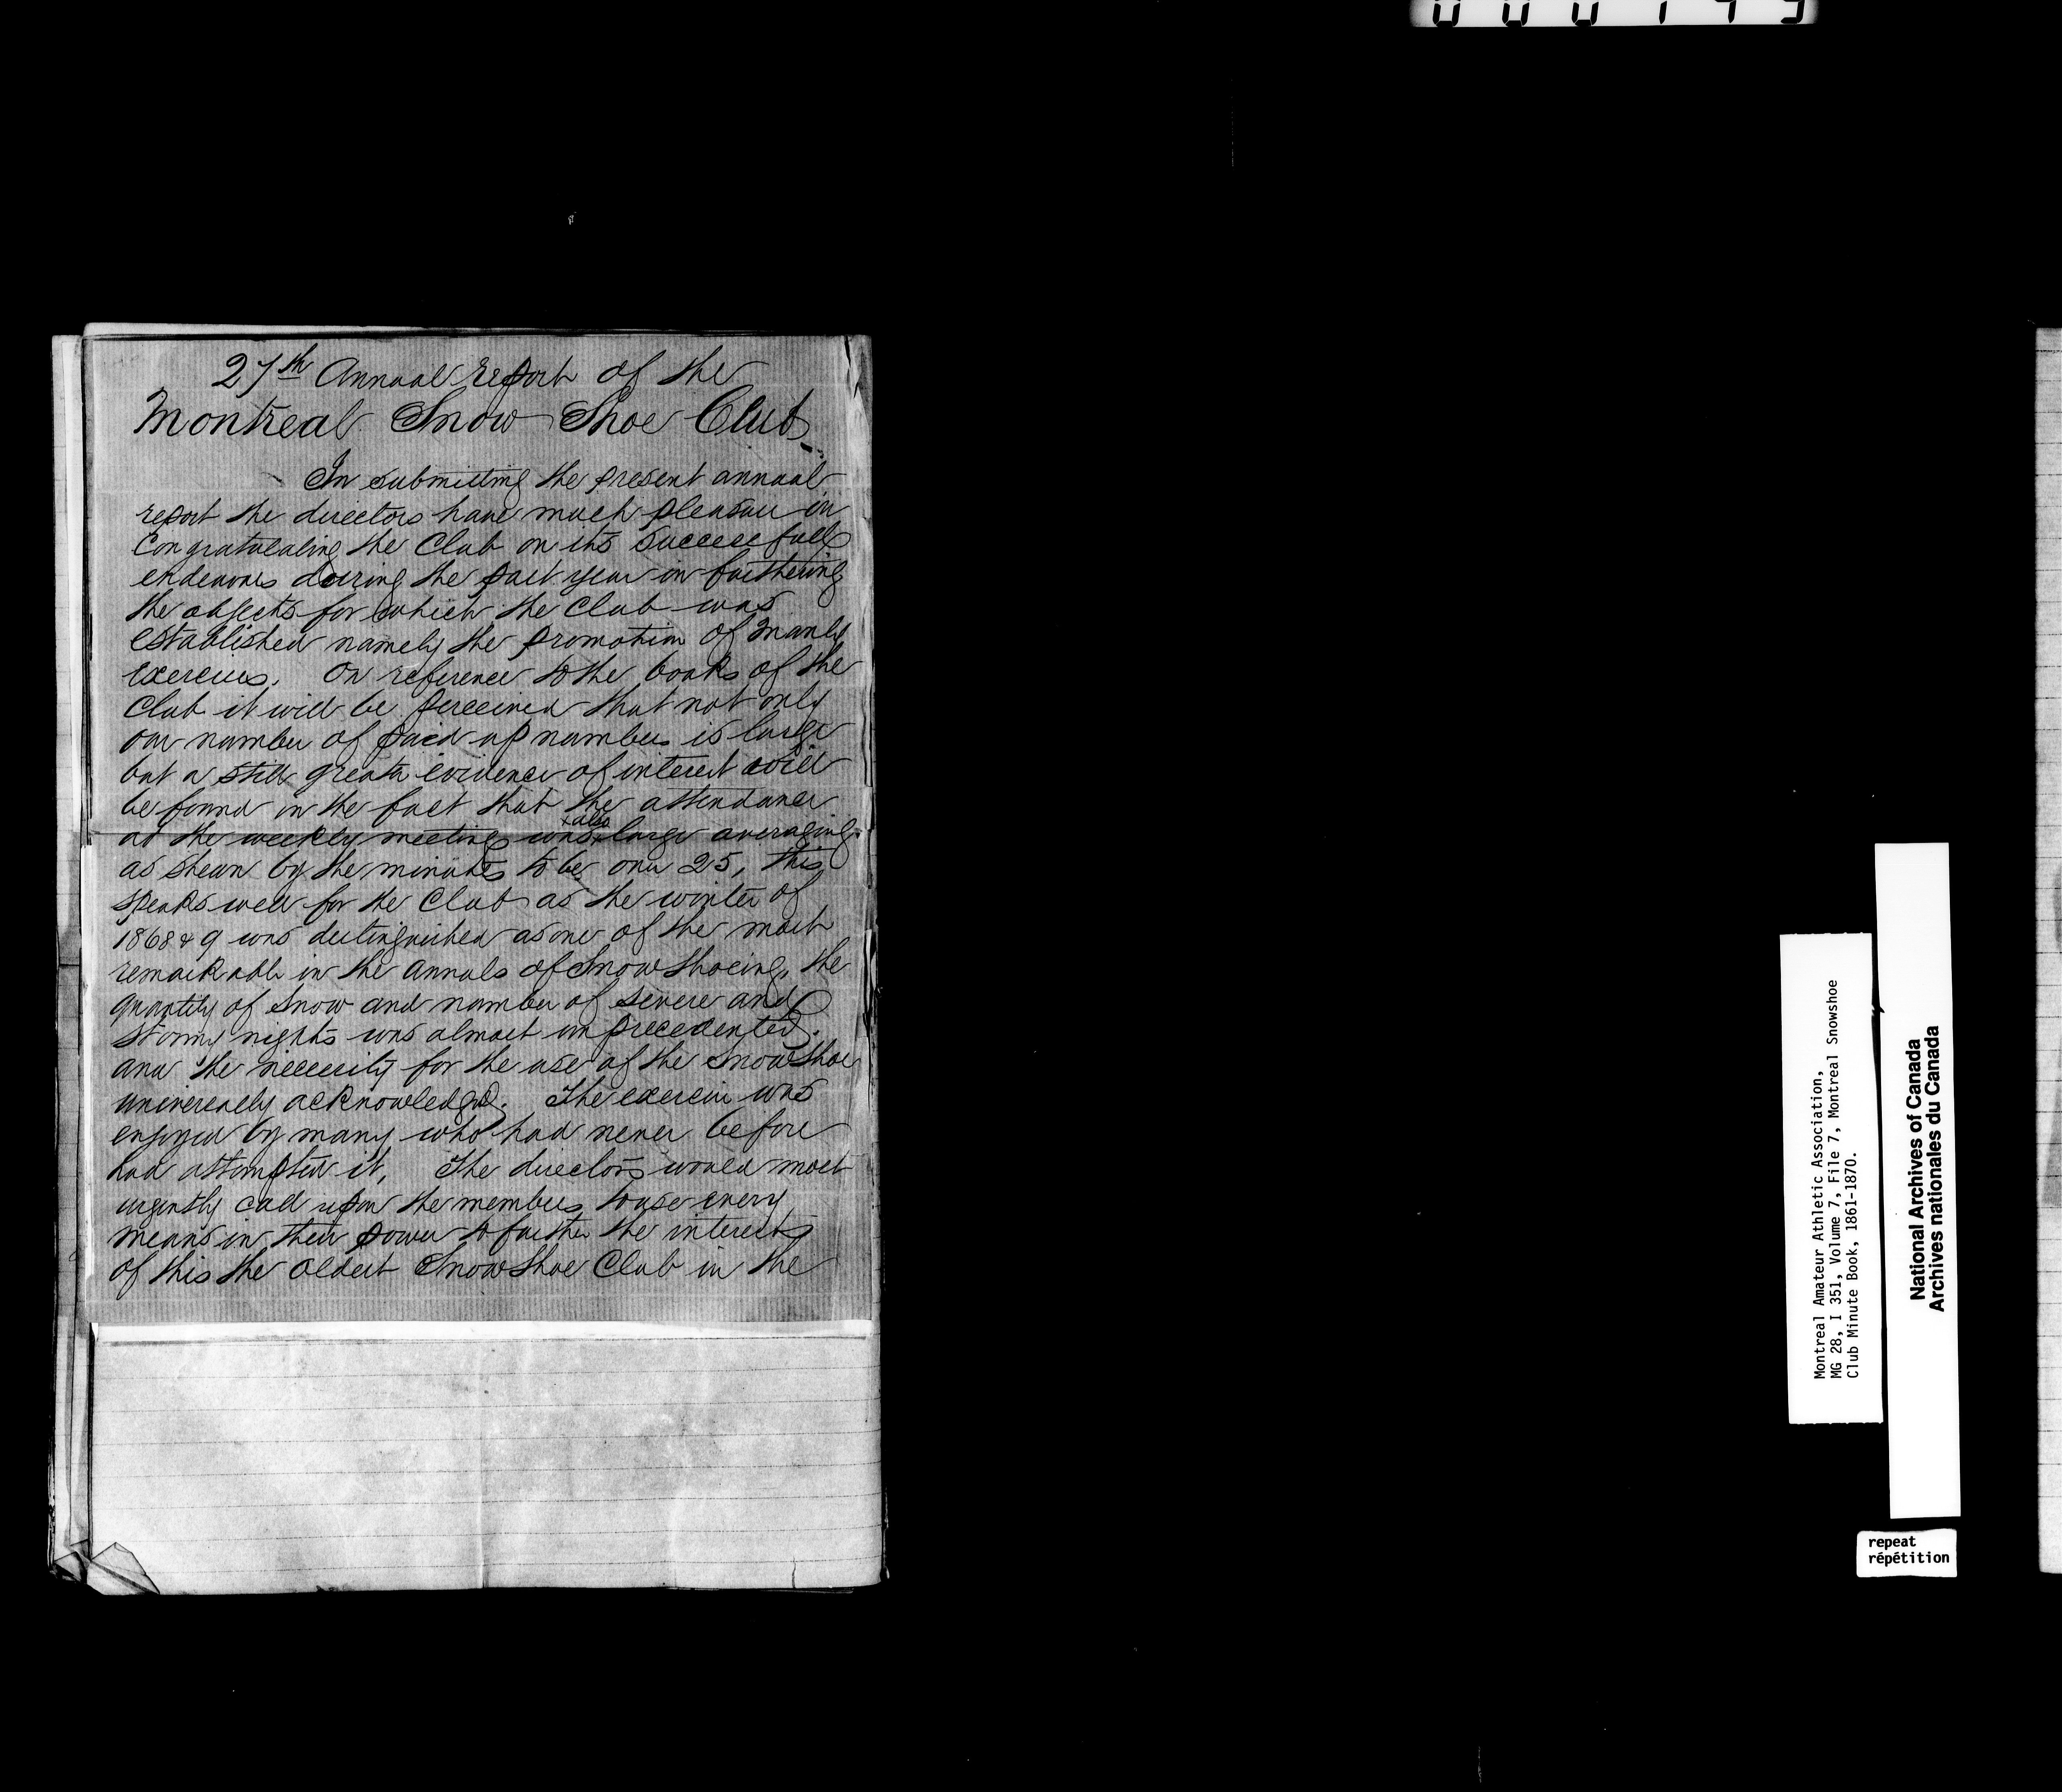 27th Annual report of the
Montreal Snow Shoe Club
In submitting the present annual
report the directors have much pleasure in
Congratulating the Club on its successfull
endeavors during the past year in furthering
the objects for which the Club was
established namely the promotion of manly
exercises. On reference to the books of the
Club it will be perceived that not only
our number of paid up numbers is large
but a still greater evidence of interest will
be found in the fact that the attendance
at the weekly meetings was also large averaging
as shewn by the minutes to be over 25, this
speaks well for the Club as the winter of
1868 & 9 was distinguished as one of the most
remarkable in the annals of Snow Shoeing, the
quantity of snow and number of severe and
stormy nights was almost unprecedented.
and the necessity for the use of the Snow Shoe
universally acknowledged. The exercise was
enjoyed by many who had never before
had attempted it. The directors would most
urgently call upon the members to use every
means in their power to further the interests
of this the oldest Snow Shoe Club in the
Montreal Amateur Athletic Association,
MG 28, I 351, Volume 7, File 7, Montreal Snowshoe
Club Minute Book, 1861-1870.
National Archives of Canada
Archives nationales du Canada
repeat
répétition